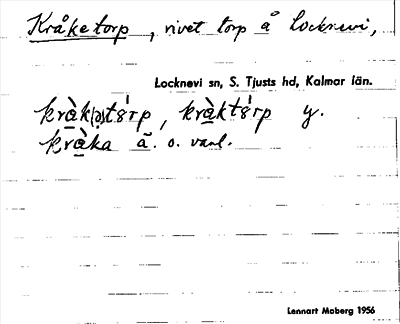 Kråketorp, rivet torp å Locknevi,
Locknevi sn, S. Tjusts hd, Kalmar län.
kràk(ə)tɞ́rp, kràktɞ́rp y.
kràka ä. o. vanl.
Lennart Moberg 1956